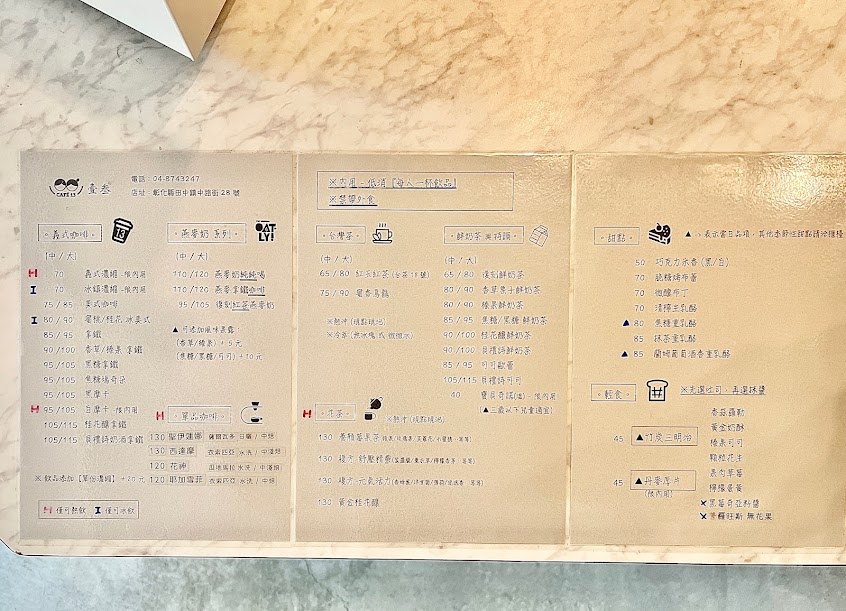 CAFE 13
壹叁
電話：04-8743247
店址：彰化縣田中鎮中路街28號
義式咖啡
13
(中/大)
H 70 義式濃縮 -限內用
I 70 冰鎮濃縮 -限內用
75/85 美式咖啡
I 80/90 蜜桃/桂花 冰美式
85/95 拿鐵
90/100 香草/榛果 拿鐵
95/105 黑糖拿鐵
95/105 焦糖瑪奇朵
95/105 黑摩卡
H 95/105 白摩卡 -限內用
105/115 桂花釀拿鐵
105/115 貝禮詩奶酒拿鐵
※飲品添加【單份濃縮】+20元
H 僅可熱飲 I 僅可冰飲
燕麥奶 系列
OATLY!
(中/大)
110/120 燕麥奶純純喝
110/120 燕麥拿鐵咖啡
95/105 復刻紅茶燕麥奶
▲可添加風味蒸露：
(香草/榛果) +5元
(焦糖/黑糖/可可) +10元
H 單品咖啡
130 聖伊蓮娜 薩爾瓦多 日曬/中焙
130 西達摩 衣索匹亞 水洗/中焙
120 花神 瓜地馬拉 水洗/中淺焙
120 耶加雪菲 衣索匹亞 水洗/中焙
※內用，低消【每人一杯飲品】
※禁帶外食
台灣茶
(中/大)
65/80 紅玉紅茶 (台茶18號)
75/90 蜜香烏龍
鮮奶茶 與特調
(中/大)
65/80 復刻鮮奶茶
80/90 香草莢鮮奶茶
80/90 榛果鮮奶茶
85/95 焦糖/黑糖 鮮奶茶
90/100 桂花釀鮮奶茶
90/100 貝禮詩鮮奶茶
85/95 可可歐蕾
105/115 貝禮詩可可
40 寶貝奇諾(溫) -限內用
(▲三歲以下兒童適宜)
H 花茶
130 養顏莓果茶
130 複方 紓壓精靈
130 複方 元氣活力
130 黃金桂花釀
甜點
▲->表示當日品項，其他季節性甜點請洽櫃檯
50 巧克力米香 (黑/白)
70 脆糖烤布蕾
70 微醺布丁
70 清檸生乳酪
▲ 80 焦糖重乳酪
85 抹茶重乳酪
▲ 85 蘭姆葡萄酒香重乳酪
輕食
※先選吐司，再選抹醬
45 ▲竹炭三明治
45 ▲丹麥厚片
(限內用)
香蒜羅勒
黃金奶酥
榛果可可
顆粒花生
果肉草莓
檸檬蛋黃